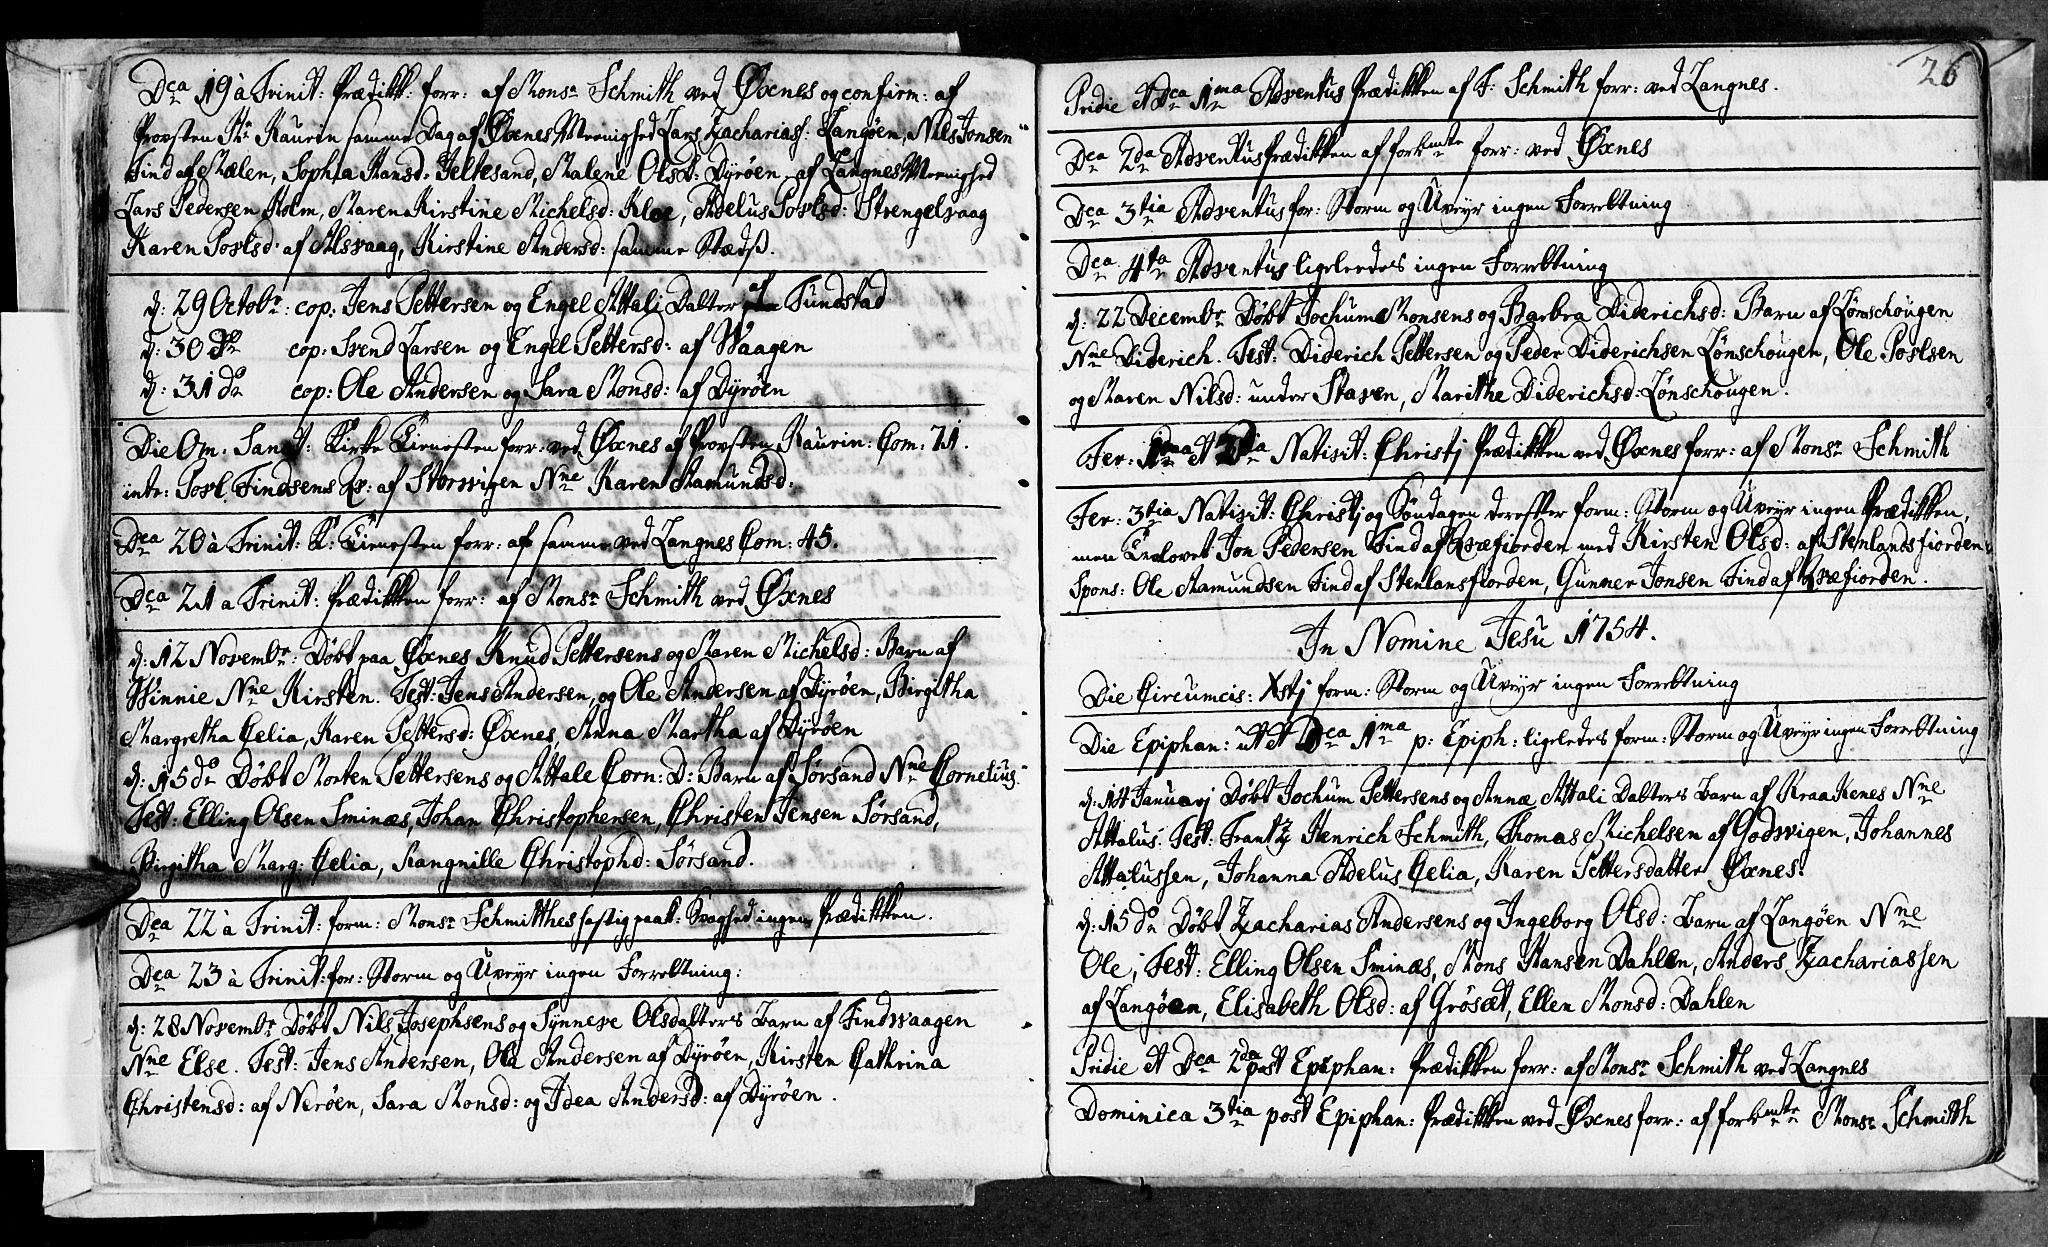 Dca 19 à Trinit: Prædik: forr: af Monsr Schmith ved Øxnes og confirm: af
Provsten Hr Kaurin samme Dag af Øxnes Meenighed Lars Zachariass: Langøen, Nils Jonsen
Find af Mælen, Sophia Hansd: Jeltesand, Malene Olsd: Dyrøen, af Langnes Meenighed
Lars Pedersen Holm, Maren Kirstine Michelsd: Kloe, Adelus Povlsd: Strengelvaag
Karen Povlsd: af Alsvaag, Kirstine Andersd: samme Stædß.
d: 29 Octobr: cop: Jens Pettersen og Engel Attali Datter af Tundstad
d: 30 do cop: Svend Larsen og Engel Pettersd: af Waagen
d: 31 do cop: Ole Andersen og Sara Monsd: af Dyrøen
Die Om: Sanct: Kirke Tienesten forr: ved Øxnes af Provsten Kaurin: Com: 71.
intr: Povl Findsens Qv: af Storvigen Nne Karen Aamundsd.
Dca 20 à Trinit: K: Tienesten forr: af samme ved Langnes Com: 45.
Dca 21 a Trinit: Prædikken forr: af Monsr Schmith ved Øxnes
d: 12 Novembr: Døbt paa Øxnes Knud Pettersens og Maren Michelsd: Barn af
Winnie Nne Kirsten. Test: Jens Andersen, og Ole Andersen af Dyrøen, Birgitha
Margretha Celia, Karen Pettersd: Øxnes, Anna Martha af Dyrøen
d: 15 do Døbt Morten Pettersens og Attale Corn: D: Barn af Sørsand Nne Cornelius.
Test: Elling Olsen Sminæs, Johan Christophersen, Christen Jensen Sørsand,
Birgitha Marg: Celia, Rangnille Christophd: Sørsand.
Dca 22 à Trinit: form: Monsr Schmitthes hastig paak: Svaghed ingen Prædikken.
Dca 23 à Trinit: for: Storm og Uveyr ingen Forretning:
d: 28 Novembr Døbt Nils Josephsens og Synneve Olsdatters Barn af Findvaagen
Nne Else. Test: Jens Andersen, Ole Andersen af Dyrøen, Kirsten Cathrina
Christensd: af Nerøen, Sara Monsd: og Idea Andersd: af Dyrøen.
26
Pridie et Dca 1ma Adventus Prædikken af F: Schmith forr: ved Langnes.
Dca 2da Adventus Prædikken af forbmte forr: ved Øxnes
Dca 3tia Adventus for: Storm og Uveyr ingen Forretning
Dca 4ta Adventus ligeleedes ingen Forretning
d: 22 Decembr Døbt Jochum Monsens og Barbra Diderichsd: Barn af Lønschougen
Nne Diderich. Test: Diderich Pettersen og Peder Diderichsen Lønschougen, Ole Povlsen
og Maren Nilsd: under Staven, Marithe Diderichsd: Lønschougen.
Fer: 1ma et 2da Nativit: Christj Prædikken ved Øxnes forr: af Monsr Schmith
Fer: 3tia Nativit: Christj og Søndagen derefter form: Storm og Uveyr ingen Prædikken,
men Trolovet Jon Pedersen Find af Qvæfiorden med Kirsten Olsd: af Stenlandsfiorden.
Spons: Ole Aamundsen Find af Stenlansfiorden, Gunner Jonsen Find af Qvæfiorden.
In Nomine Jesu 1754.
Die Circumcis: Xstj form: Storm og Uveyr ingen Forretning
Die Epiphan: ut et Dca 1ma p: Epiph: ligeledes form: Storm og Uveyr ingen Forretning
d: 14 Januarj Døbt Jochum Pettersens og Annæ Attali Datters Barn af Kraakenes Nne
Attalus. Test: Frantz Henrich Schmith, Thomas Michelsen af Godvigen, Johannes
Attalussen, Johanna Adelus Celia, Karen Pettersdatter Øxnes.
d: 15 do Døbt Zacharias Andersens og Ingeborg Olsd: Barn af Langøen Nne
Ole, Test: Elling Olsen Sminæs, Mons Hansen Dahlen, Anders Zachariassen
af Langøen, Elisabeth Olsd: af Grøsæt, Ellen Monsd: Dahlen
Pridie et Dca 2da post Epiphan: Prædikken forr: af Monsr Schmith ved Langnes
Dominica 3tia post Epiphan: Prædikken ved Øxnes forr: af forbmte Monsr Schmith